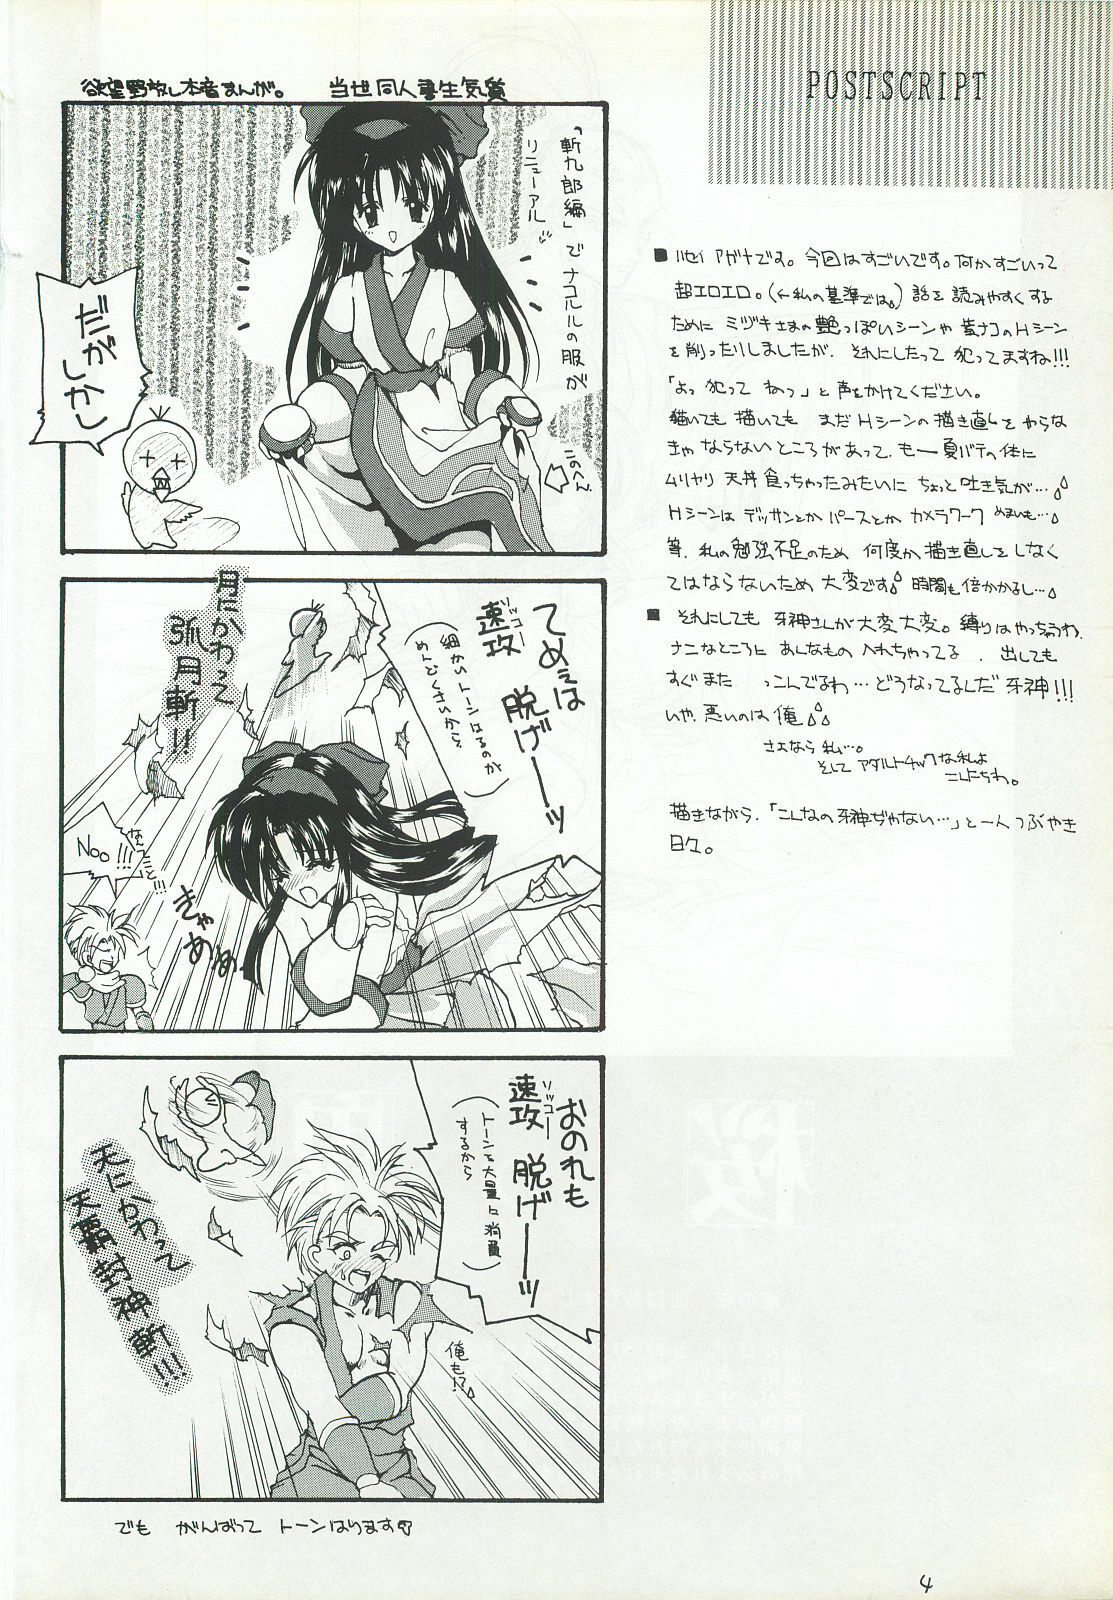 POSTSCRIPT
欲望野放し本音まんが。 当世同人書生気質
「斬九郎編」でナコルルの服が
リニューアル
このへん
だが
しかし
てめぇは
速攻 脱げーーッ
ソッコー
(細かいトーンはるのが
めんどくさいから)
月にかわって
弧月斬!!
なんてこと!!!
Noo!!!
きゃああぁ
おのれも
速攻 脱げーーッ
ソッコー
(トーンを大量に消費
するから)
天にかわって
天覇封神斬!!!
俺も!?
でも がんばって トーンはります
■ ハセイアガナです。今回はすごいです。何がすごいって
超エロエロ。(←私の基準では)話を読みやすくする
ために ミヅキさまの艶っぽいシーンや 蒼ナコのHシーン
を削ったりしましたが、それにしたって 犯ってますね!!!
「よっ 犯って ねっ」と声をかけてください。
描いても 描いても まだ Hシーンの描き直しを やらな
きゃならないところがあって、もー夏バテの体に
ムリヤリ 天丼食っちゃったみたいに ちょっと吐き気が…
Hシーンは デッサンとか パースとか カメラワーク めまいも…
等、私の勉強不足のため 何度か描き直しをしなく
てはならないため 大変です 時間も倍かかるし…
■ それにしても 牙神さんが大変大変。縛りはやっちゃうわ、
ナニなところに あんなもの 入れちゃってる、出しても
すぐまた っこんでるわ…どうなってるんだ 牙神!!!
いや、悪いのは俺
さよなら私…。
そして アダルトチックな私よ
こんにちわ。
描きながら、「こんなの牙神ぢゃない…」と一人つぶやき
日々。
4